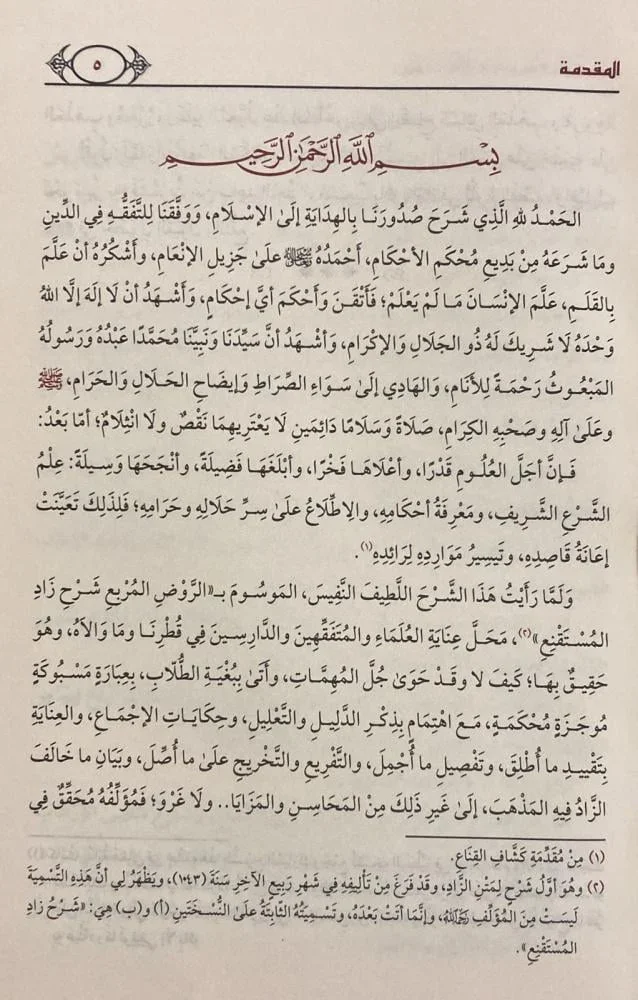 المقدمة
٥
بِسْمِ ٱللَّهِ ٱلرَّحْمَٰنِ ٱلرَّحِيمِ
الحَمْدُ للهِ الَّذِي شَرَحَ صُدُورَنَا بِالهِدَايَةِ إِلَىٰ الإِسْلَامِ، وَوَفَّقَنَا لِلتَّفَقُّهِ فِي الدِّينِ
وَمَا شَرَعَهُ مِنْ بَدِيعِ مُحْكَمِ الأَحْكَامِ، أَحْمَدُهُ ﷺ عَلَىٰ جَزِيلِ الإِنْعَامِ، وَأَشْكُرُهُ أَنْ عَلَّمَ
بِالقَلَمِ، عَلَّمَ الإِنْسَانَ مَا لَمْ يَعْلَمْ؛ فَأَتْقَنَ وَأَحْكَمَ أَيَّ إِحْكَامٍ، وَأَشْهَدُ أَنْ لَا إِلَهَ إِلَّا اللهُ
وَحْدَهُ لَا شَرِيكَ لَهُ ذُو الجَلَالِ وَالإِكْرَامِ، وَأَشْهَدُ أَنَّ سَيِّدَنَا وَنَبِيَّنَا مُحَمَّدًا عَبْدُهُ وَرَسُولُهُ
المَبْعُوثُ رَحْمَةً لِلأَنَامِ، وَالهَادِي إِلَىٰ سَوَاءِ الصِّرَاطِ وَإِيضَاحِ الحَلَالِ وَالحَرَامِ، ﷺ
وَعَلَىٰ آلِهِ وَصَحْبِهِ الكِرَامِ، صَلَاةً وَسَلَامًا دَائِمَينِ لَا يَعْتَرِيهِمَا نَقْصٌ وَلَا انْثِلَامٌ؛ أَمَّا بَعْدُ:
فَإِنَّ أَجَلَّ العُلُومِ قَدْرًا، وَأَعْلَاهَا فَخْرًا، وَأَبْلَغَهَا فَضِيلَةً، وَأَنْجَحَهَا وَسِيلَةً: عِلْمُ
الشَّرْعِ الشَّرِيفِ، وَمَعْرِفَةُ أَحْكَامِهِ، وَالِاطِّلَاعُ عَلَىٰ سِرِّ حَلَالِهِ وَحَرَامِهِ؛ فَلِذَلِكَ تَعَيَّنَتْ
إِعَانَةُ قَاصِدِهِ، وَتَيسِيرُ مَوَارِدِهِ لِرَائِدِهِ(١).
وَلَمَّا رَأَيْتُ هَذَا الشَّرْحَ اللَّطِيفَ النَّفِيسَ، المَوْسُومَ بِـ«الرَّوْضِ المُرْبِعِ شَرْحِ زَادِ
المُسْتَقْنِعِ»(٢)، مَحَلَّ عِنَايَةِ العُلَمَاءِ وَالمُتَفَقِّهِينَ وَالدَّارِسِينَ فِي قُطْرِنَا وَمَا وَالَاهُ، وَهُوَ
حَقِيقٌ بِهَا؛ كَيْفَ لَا وَقَدْ حَوَىٰ جُلَّ المُهِمَّاتِ، وَأَتَىٰ بِبُغْيَةِ الطُّلَّابِ، بِعِبَارَةٍ مَسْبُوكَةٍ
مُوجَزَةٍ مُحْكَمَةٍ، مَعَ اهْتِمَامٍ بِذِكْرِ الدَّلِيلِ وَالتَّعْلِيلِ، وَحِكَايَاتِ الإِجْمَاعِ، وَالعِنَايَةِ
بِتَقْيِيدِ مَا أُطْلِقَ، وَتَفْصِيلِ مَا أُجْمِلَ، وَالتَّفْرِيعِ وَالتَّخْرِيجِ عَلَىٰ مَا أُصِّلَ، وَبَيَانِ مَا خَالَفَ
الزَّادُ فِيهِ المَذْهَبَ، إِلَىٰ غَيرِ ذَلِكَ مِنْ المَحَاسِنِ وَالمَزَايَا.. وَلَا غَرْوَ؛ فَمُؤَلِّفُهُ مُحَقِّقٌ فِي
(١) مِنْ مُقَدِّمَةِ كَشَّافِ القِنَاعِ.
(٢) وَهُوَ أَوَّلُ شَرْحٍ لِمَتْنِ الزَّادِ، وَقَدْ فَرَغَ مِنْ تَأْلِيفِهِ فِي شَهْرِ رَبِيعٍ الآخِرِ سَنَةَ (١٠٤٣)، وَيَظْهَرُ لِي أَنَّ هَذِهِ التَّسْمِيَةَ
لَيسَتْ مِنَ المُؤَلِّفِ رَحِمَهُ اللهُ، وَإِنَّمَا أَتَتْ بَعْدَهُ، وَتَسْمِيَتُهُ الثَّابِتَةُ عَلَىٰ النُّسْخَتَينِ (أ) وَ(ب) هِيَ: «شَرْحُ زَادِ
المُسْتَقْنِعِ».